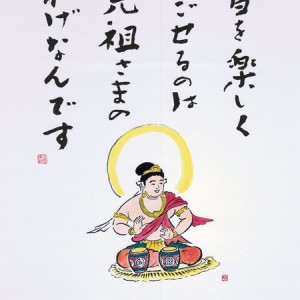 日を楽しく
ごせるのは
先祖さまの
かげなんです